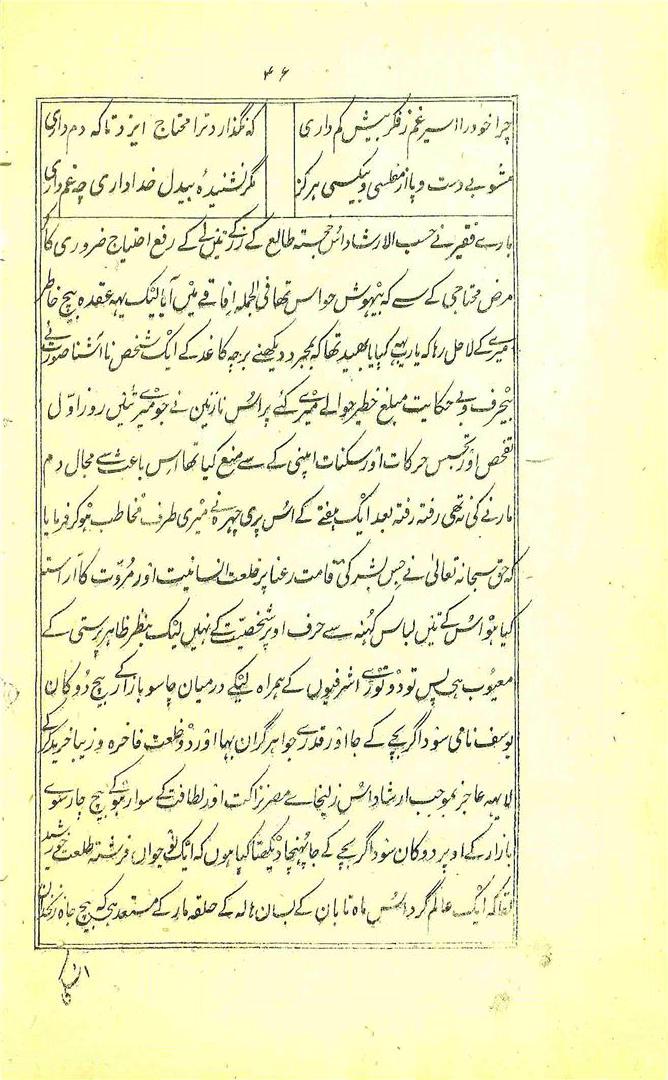 ۴۶
چرا خود را اسیر غم ز فکر بیش کم داری
که نگذارد ترا محتاج ایزد تا که دم داری
مشو بے دست و پا از مفلسی و بیکسی ہرگز
مگر نشنیدۂ بیدل خدا داری چہ غم داری
بارے فقیر نے حسب الارشاد اُس خجستہ طالع کے زر کے تئیں لے کے رفع احتیاج ضروری کا
مرض محتاجی کے سے کہ بیہوش حواس تھا فی الجملہ افاقے میں آیا لیکن یہہ عقدہ بیچ خاطر
میرے کے لاحل رہا کہ یارب یہہ کیا بھید تھا کہ بمجرد دیکھنے پرچہ کاغذ کے ایک شخص ناآشنا صورت نے
بیحرف و بے حکایت مبلغ خطیر حوالے میرے کئے پر اُس نازنین نے جو میرے تئیں روز اوّل
تفحص اور تجسس حرکات اور سکنات اپنی کے سے منع کیا تھا اس باعث سے مجال دم
مارنے کی نہ تھی رفتہ رفتہ بعد ایک ہفتے کے اُس پری چہرہ نے میری طرف مخاطب ہو کر فرمایا
کہ حق سبحانہ تعالیٰ نے جس بشر کی قامت رعنا پر خلعت انسانیت اور مُروّت کا آراستہ
کیا ہو اُس کے تئیں لباس کہنہ سے حرف اوپر شخصیّت کے نہیں لیکن بنظر ظاہر پرستی کے
معیُوب ہی پس تو دو توڑے اشرفیوں کے ہمراہ لیکے درمیان چارسو بازار کے بیچ دُوکان
یوسف نامی سوداگر بچے کے جا اور قدرے جواہر گران بہا اور دو خلعت فاخرہ و زیبا خرید کر کے
لا یہہ عاجز بموجب ارشاد اُس زلیخاے مصر نزاکت اور لطافت کے سوار ہو کے بیچ چارسوے
بازار کے اوپر دوکان سوداگر بچے کے جا پُہنچا دیکھتا کیا ہوں کہ ایک نوجوان فرشتہ طلعت خورشید
لقا کہ ایک عالم گرد اُس ماہ تابان کے بسان ہالہ کے حلقہ مار کے مستعد ہی کہ بیچ چاہ زنخدان